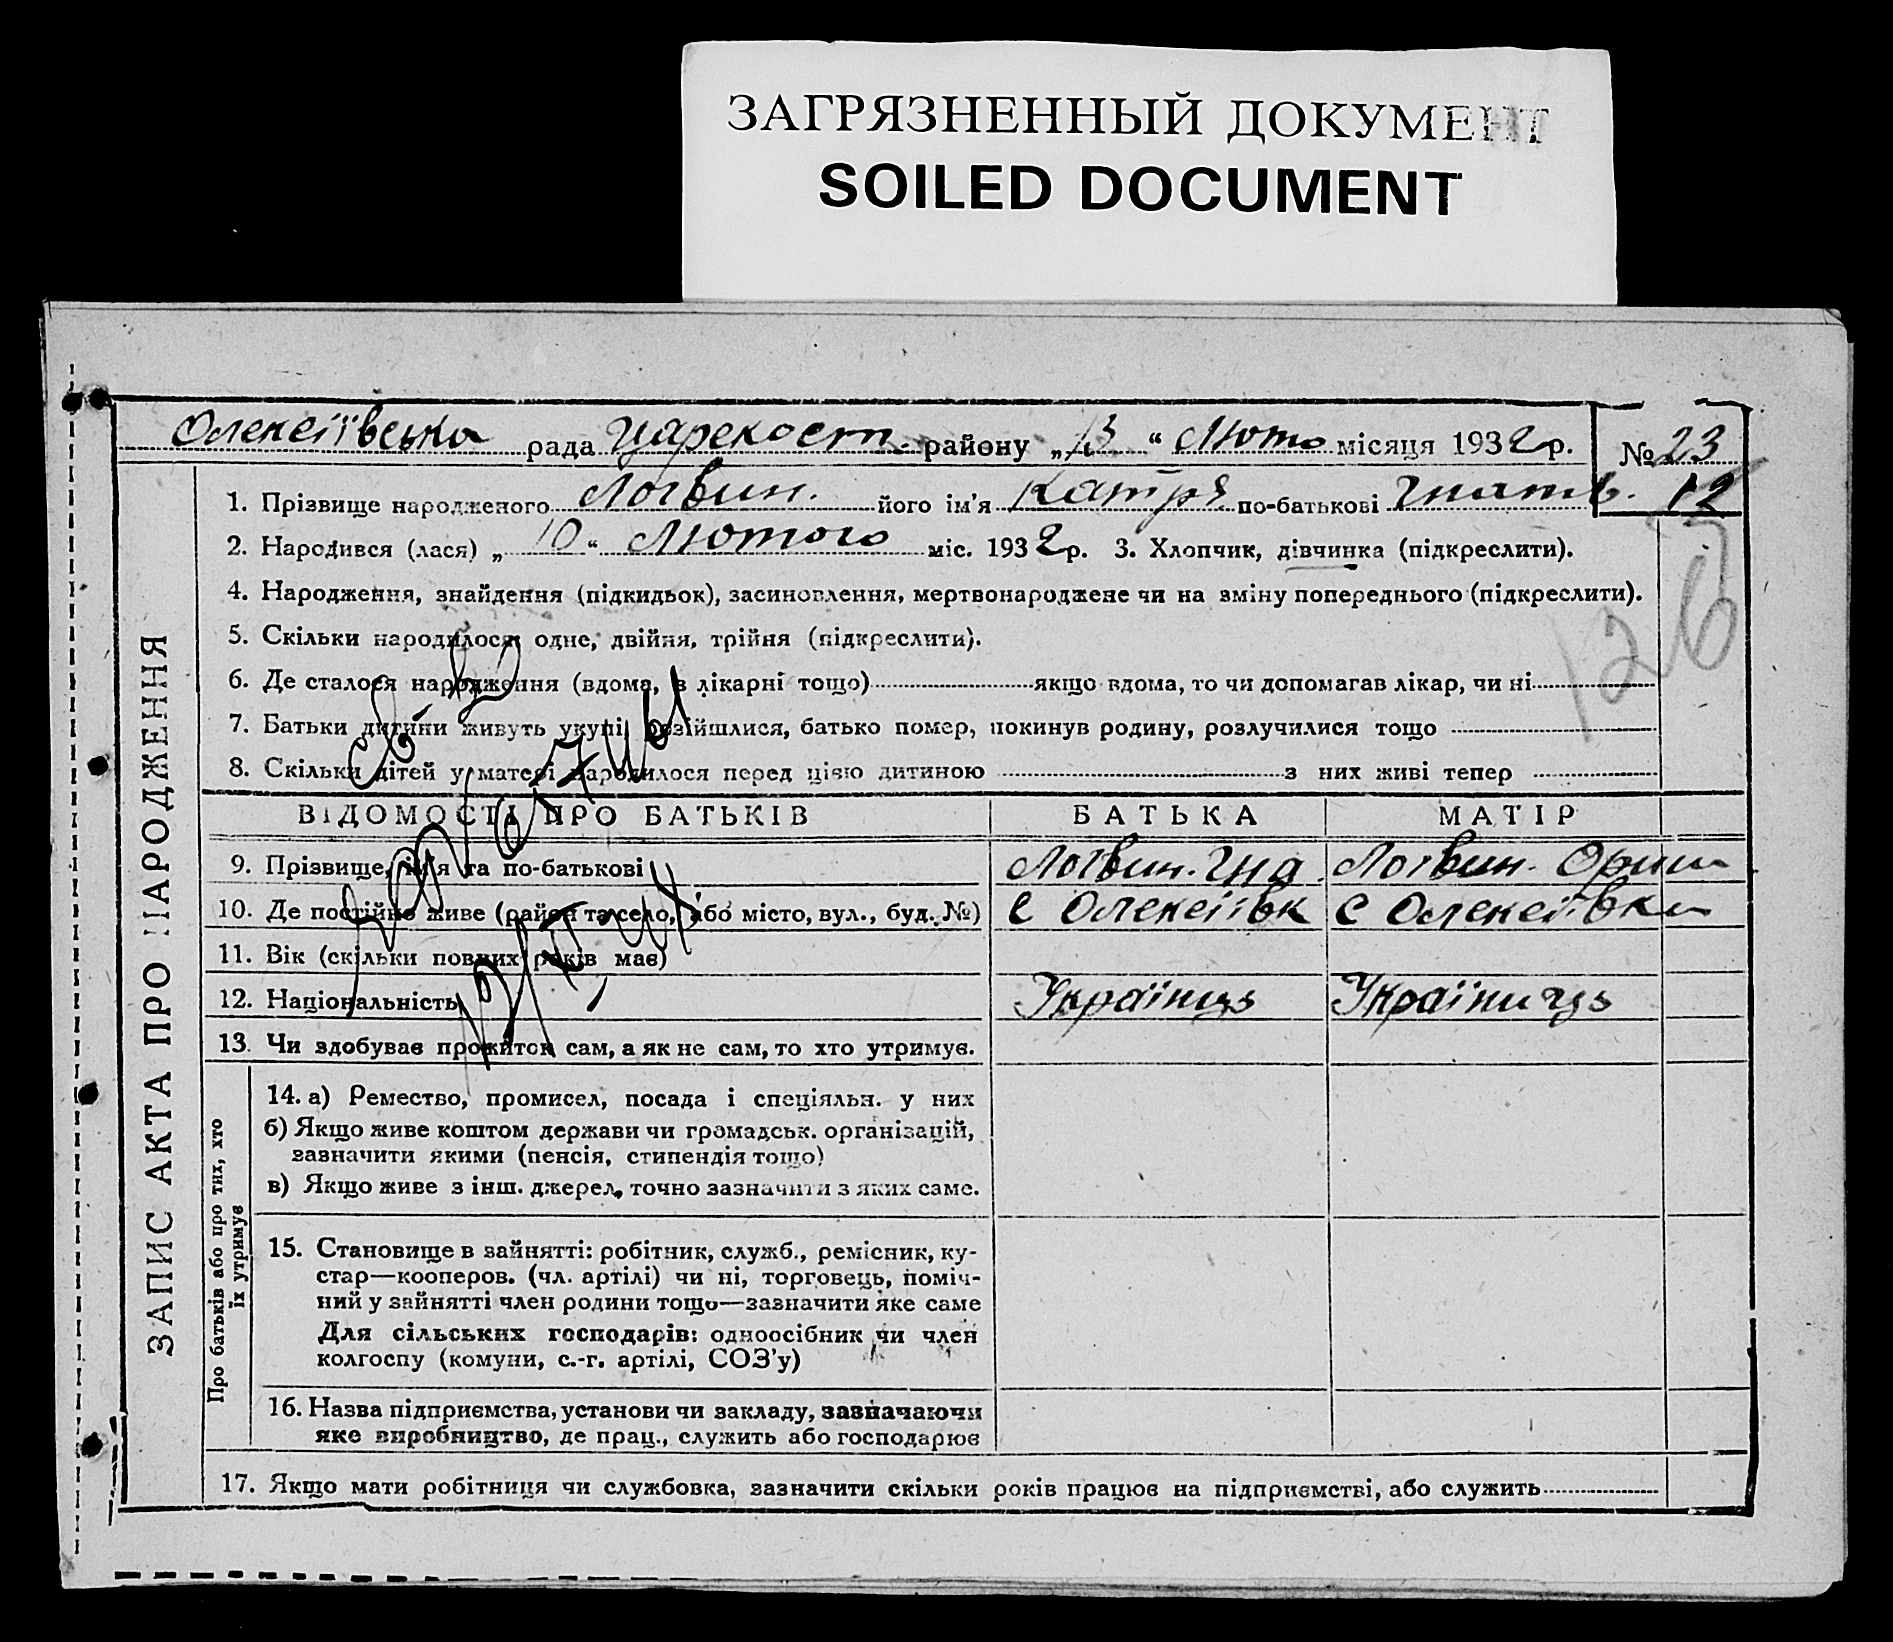 ЗАГРЯЗНЕННЫЙ ДОКУМЕНТ
SOILED DOCUMENT
Олексіївська рада Царекост. району „13“ Люто місяця 1932 р.
№ 23
12
126
ЗАПИС АКТА ПРО НАРОДЖЕННЯ
1. Прізвище народженого Логвин. його ім'я Катря по-батькові Гнатів.
2. Народився (лася) „10“ Лютого міс. 1932 р. 3. Хлопчик, дівчинка (підкреслити).
4. Народження, знайдення (підкидьок), засиновлення, мертвонароджене чи на зміну попереднього (підкреслити).
5. Скільки народилося: одне, двійня, трійня (підкреслити).
6. Де сталося народження (вдома, в лікарні тощо) якщо вдома, то чи допомагав лікар, чи ні
7. Батьки дитини живуть укупі, розійшлися, батько помер, покинув родину, розлучилися тощо
8. Скільки дітей у матері народилося перед цією дитиною з них живі тепер
ВІДОМОСТІ ПРО БАТЬКІВ БАТЬКА МАТІР
9. Прізвище, ім'я та по-батькові Логвин. Гна Логвин. Орин
10. Де постійно живе (район та село, або місто, вул., буд. №) С Олексіївк С Олексіївки
11. Вік (скільки повних років має)
12. Національність Українць Українuць
13. Чи здобуває прожиток сам, а як не сам, то хто утримує.
Про батьків або про тих, хто їх утримує
14. а) Ремество, промисел, посада і спеціяльн. у них
б) Якщо живе коштом держави чи громадськ. організацій,
зазначити якими (пенсія, стипендія тощо)
в) Якщо живе з інш. джерел, точно зазначити з яких саме.
15. Становище в зайнятті: робітник, служб., ремісник, ку-
стар—кооперов. (чл. артілі) чи ні, торговець, поміч-
ний у зайнятті член родини тощо—зазначити яке саме
Для сільських господарів: одноосібник чи член
колгоспу (комуни, с.-г. артілі, СОЗ'у)
16. Назва підприємства, установи чи закладу, зазначаючи
яке виробництво, де прац., служить або господарює
17. Якщо мати робітниця чи службовка, зазначити скільки років працює на підприємстві, або служить